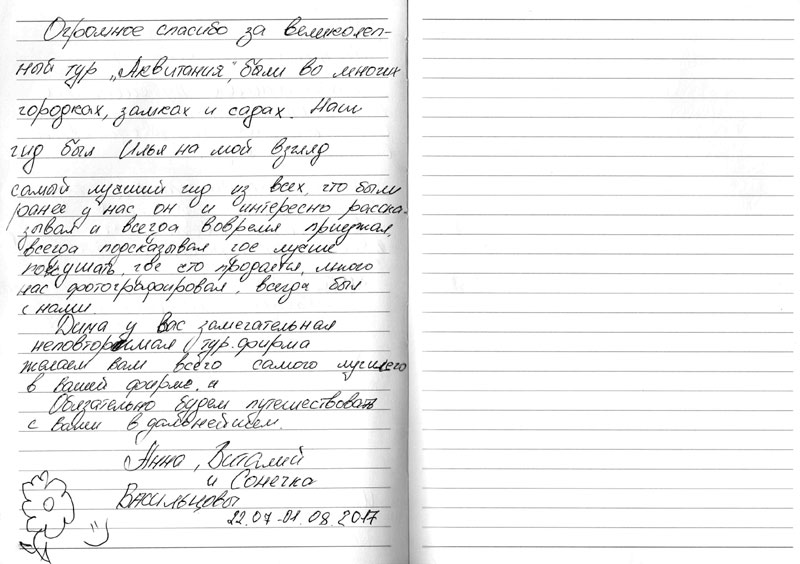 Огромное спасибо за великолеп-
ный тур „Аквитания", были во многих
городках, замках и садах. Наш
гид был Илья на мой взгляд
самый лучший гид из всех, что были
ранее у нас, он и интересно расска-
зывал и всегда вовремя приезжал,
всегда подсказывал где лучше
покушать, где что продается, много
нас фотографировал, всегда был
с нами.
Дина у вас замечательная
неповторимая тур. фирма
желаем вам всего самого лучшего
в вашей фирме, и
Обязательно будем путешествовать
с вами в дальнейшем.
Анна, Виталий
и Сонечка
Васильцовы
22.07-01.08.2017